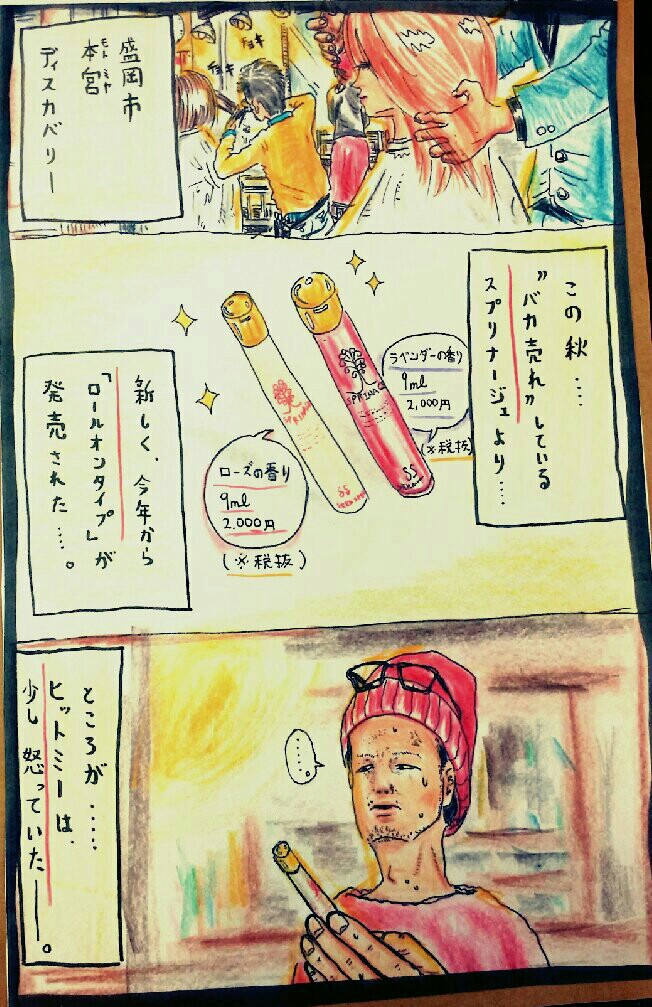 盛岡市
本宮
モト ミヤ
ディスカバリー
チョキ
チョキ
この秋….
"バカ売れ"している
スプリナージュより….
ラベンダーの香り
9ml
2,000円
(※税抜)
SS
新しく、今年から
「ロールオンタイプ」が
発売された….。
ローズの香り
9ml
2.000円
(※税抜)
SS
ところが…..
ヒットミーは、
少し怒っていた――。
……。